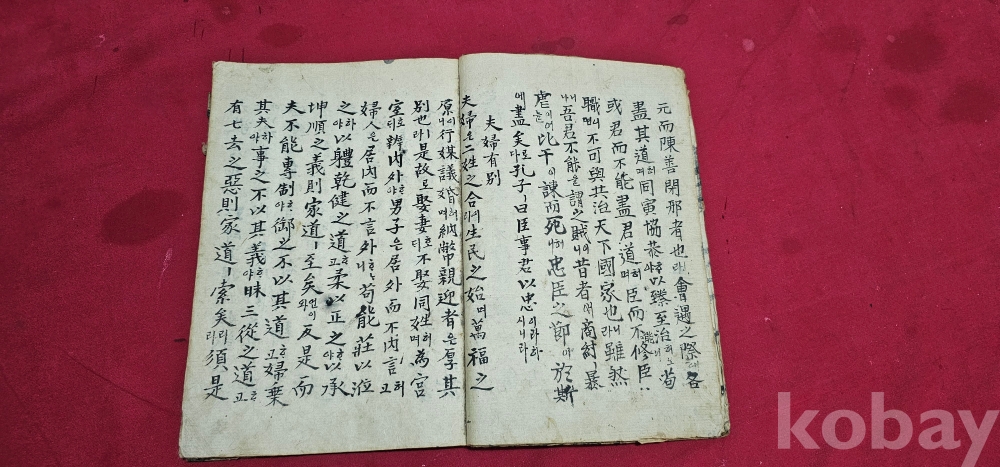 元而陳善閉邪者也라會遇之際에各
盡其道허며同寅協恭ᄒᆞ야以臻至治허苟
或君而不能盡君道허며臣而不能修臣〻
職면不可與共治天下國家也니라雖煞
吾君不能을謂之賊이니昔者에商紂ㅣ暴
虐이어늘比干이諫而死허니忠臣之節이於斯
에盡矣로다孔子ㅣ曰臣事君以忠이라하시니라
夫婦有別
夫婦은二姓之合라生民之始며萬福之
原이니行媒議婚허며納幣親迎者은厚其
別也라是故로娶妻호되不娶同姓허며為宮
室호되辨內外ᄒᆞ야男子은居外而不內言허고
婦人은居內而不言外니苟能莊以涖
之하야以軆乾健之道ᄒᆞ고柔以正之ᄒᆞ야以承
坤順之義則家道ㅣ至矣언이와反是而
夫不能專制ᄒᆞ야御之不以其道ᄒᆞ고婦乗
其夫하야事之不以其義ᄒᆞ야昧三從之道ᄒᆞ고
有七去之惡則家道ㅣ索矣리라須是
kobay